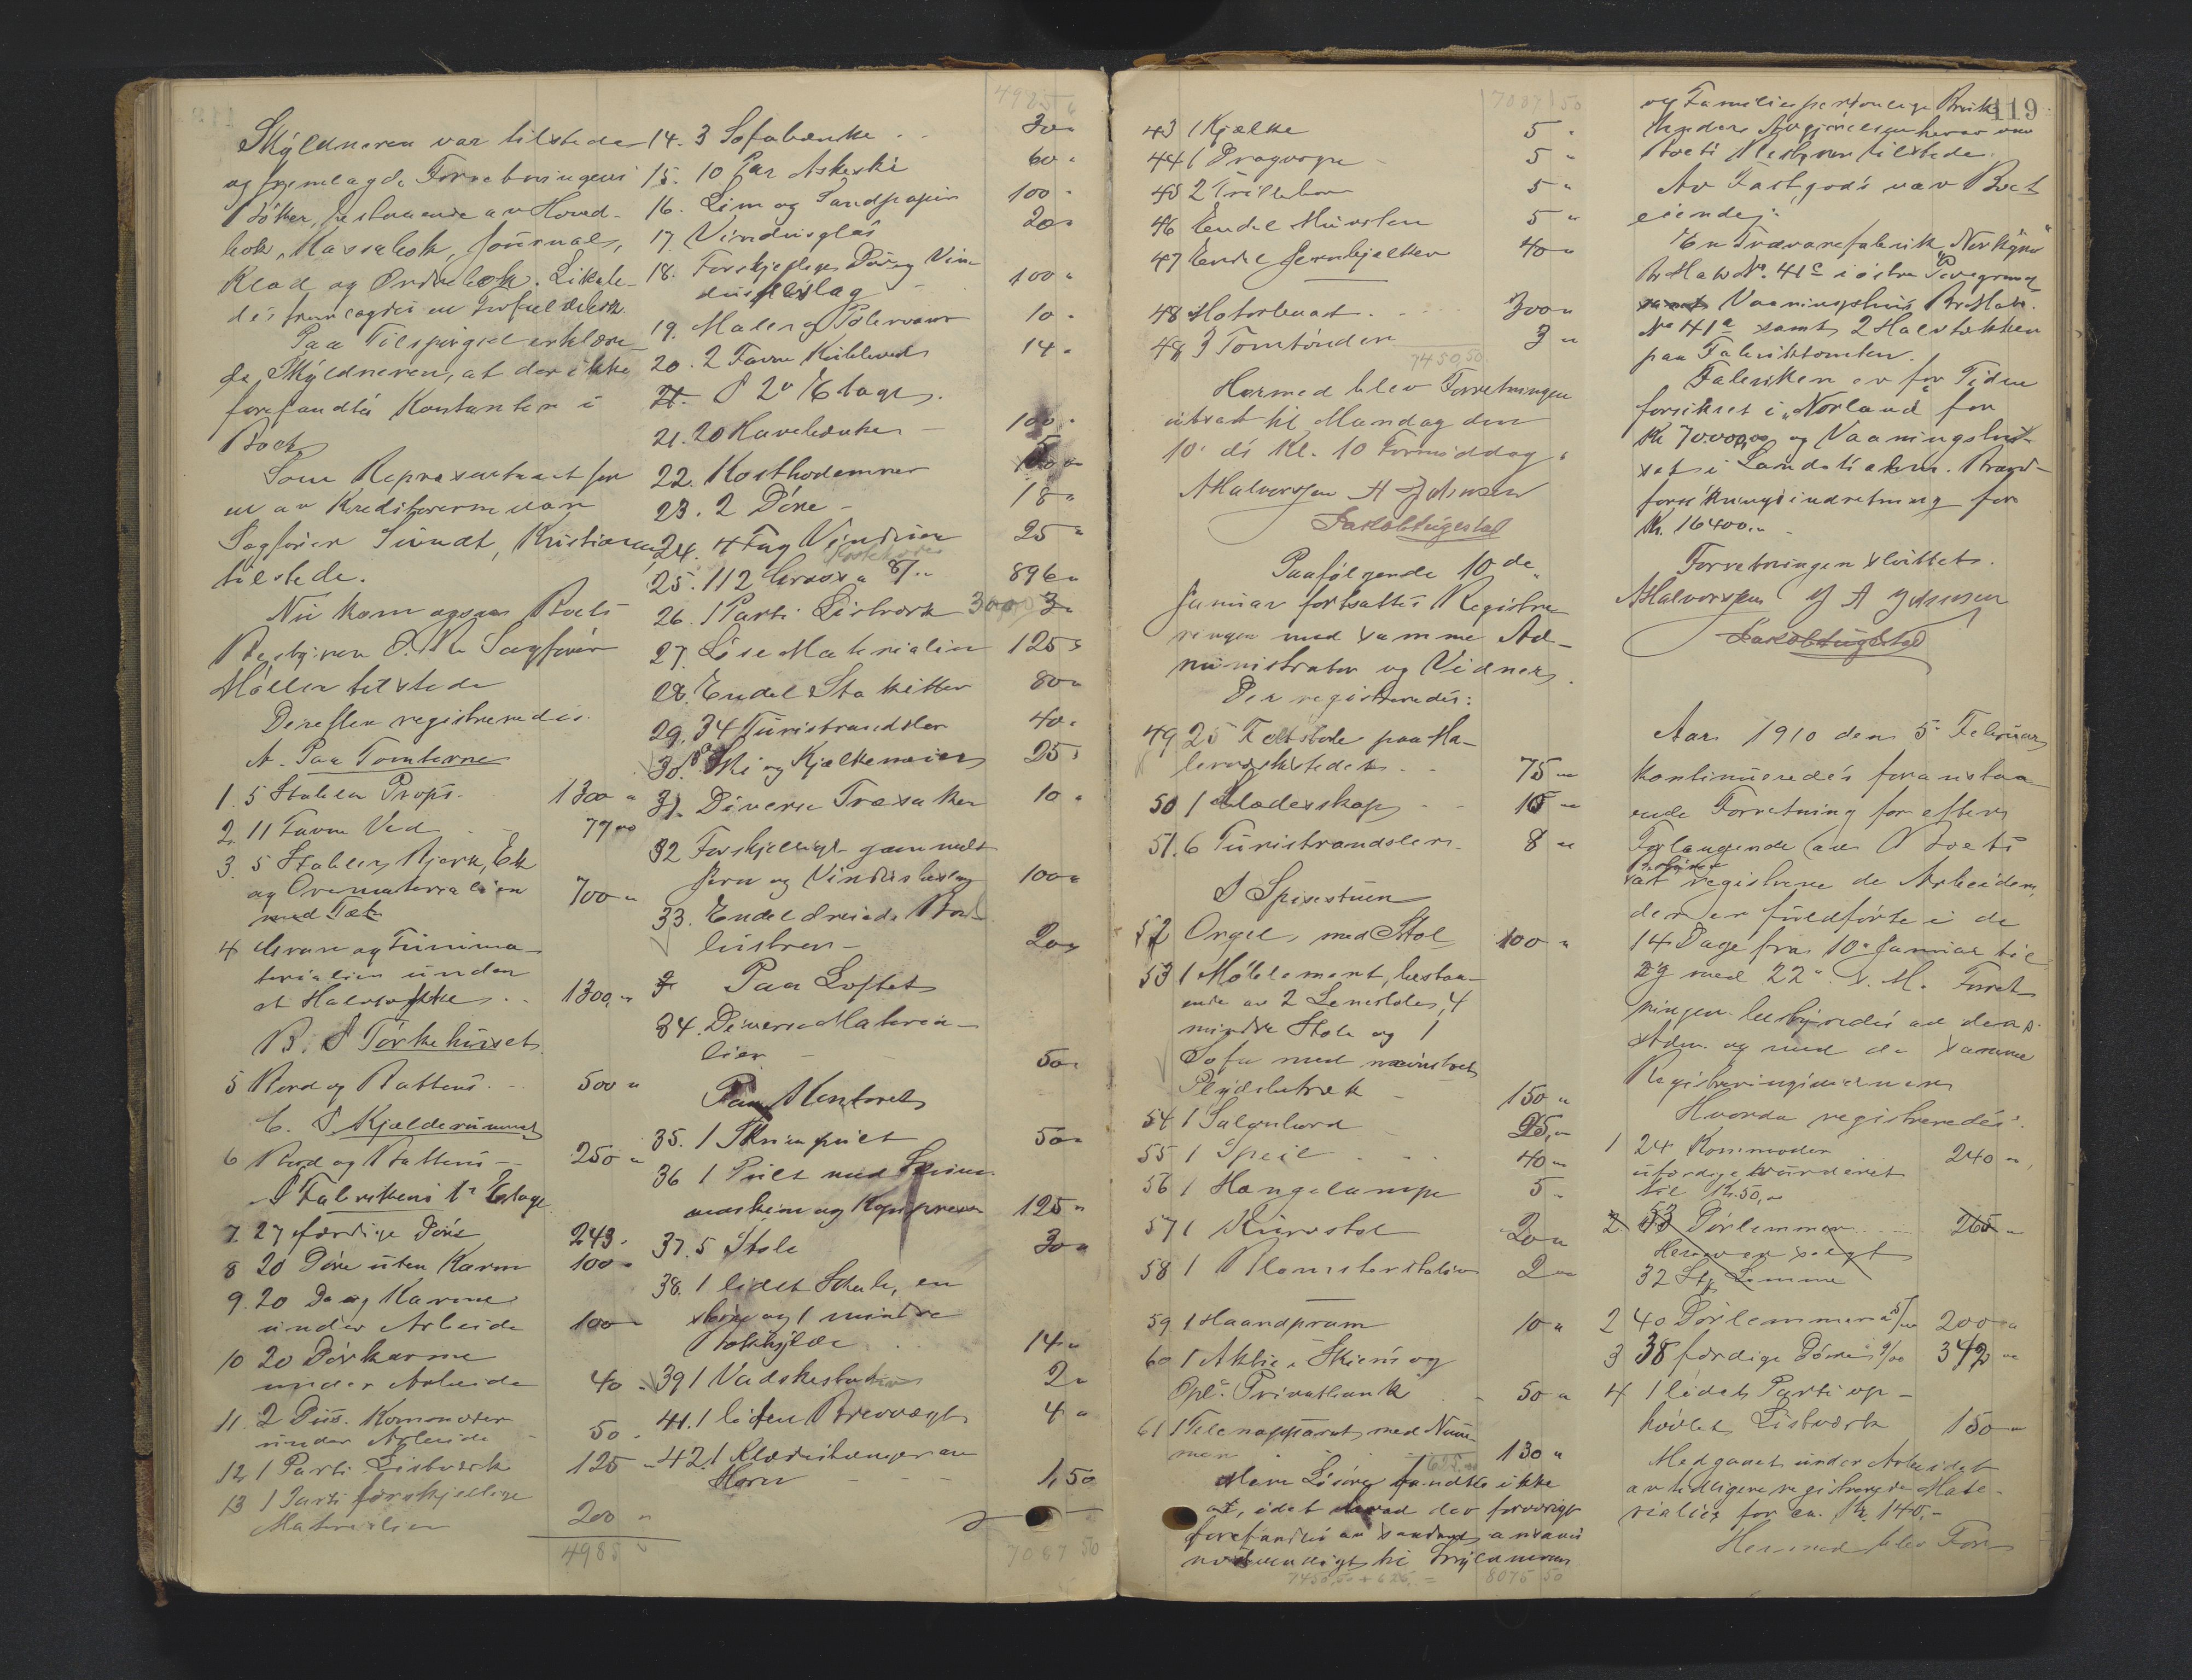 Skyldneren var tilstede
og fremlagde Forretningens
Bøker, bestaaende av Hoved-
bok, Kassabok, Journal,
Klad og Ordrebok. Likele-
des fremlagdes en
Paa Tilspørgsel erklære-
de Skyldneren, at der ikke
forefandtes Kontanter i
Boet
Som Repræsentant for
en av Kreditorerne var
Sagfører Lundt, Kristiania
tilstede.
Nu kom ogsaa Boets
Bestyrer O.R. Sagfører
Møller tilstede
Derefter registreredes.
A. Paa Tomterne
1. 5 Stabler Props. 1300 "
2. 11 Favne Ved 77 00
3. 5 Stabler Bjerk, Ek
og Orematerialier
med Tak 700 "
4 Grane og Furuma-
terialier under
et Halvtække 1300, "
B. I Tørkehuset
5 Bord og Battens 500 "
C. I Kjælderummet
6 Bord og Battens 250 "
I Fabrikkens 1ª Etage
7. 27 færdige Døre 243.
8 20 Døre uten Karm 100 "
9. 20 Do og Karme
under Arbeide 100 "
10 20 Dørkarme
under Arbeide 40 "
11. 2 Dus. Komoder
under Arbeide 50.
12. 1 Parti Listverk 125 "
13 1 Parti forskjellige
Materialier 200 "
4985 "
4985 "
14. 3 Sofabænke 30 "
15. 10 Par Askeski 60 "
16. Lim og Sandpapir 100 "
17. Vindusglas 20 "
18. Forskjellige Dør og Vin-
duesbeslag 100 "
19. Maler og Polervarer 10 "
20. 2 Favne Kubbeved 14 "
21. I 2ª Etage.
21. 20 Havebænker 100 "
22. Kosthodemner
23. 2 Døre 18 "
24. 4 Fag Vinduer 25 "
Kosthoder
25. 112 Gross a 8/" 896 "
26. 1 Parti Listverk 300
27. Lise Materialier 125 "
28. Endel Stakitter 80 "
29. 34 Turistrandsler 40 "
30. Ski og Kjælkemeier 25 "
31. Diverse Træsaker 10 "
32 Forskjelligt gammelt
Jern og Vindusbeslag 100 "
33. Endel dreiede Bord-
lustrer 20 "
Paa Loftet
34. Diverse Materia-
lier 50 "
Paa Kontoret
35. 1 Skrivpult 50 "
36 1 Pult med Skrive-
maskin og Kopipresse 125 "
37. 5 Stole 30 "
38. 1 lidet Skab, en
større og 1 mindre
Bokhylde 14 "
39 1 Vadskestativ 2 "
41. 1 liten Brevvægt 4 "
42. 1 Klædeshænger av
Horn 1,50
7087 50
7087 50
43 1 Kjælke 5 "
44 1 Dragvogn 5 "
45 2 Trillebør 5 "
46 Endel Mursten 5 "
47 Endel Jernbjelker 40 "
48 Motorbaat 300 "
48 3 Tomtønder 3 "
7450 50
Hermed blev Forretningen
utsat til Mandag den
10' ds Kl. 10 Formiddag.
A Halvorsen H Johnsen
Jakob Lugestad
Paafølgende 10de
Januar fortsattes Registre-
ringen med samme Ad-
ministrator og Vidner.
Der registreredes:
49 25 Feltstole paa Ma-
lerverkstedet 75 "
50 1 Klædesskap 15 "
51. 6 Turistrandsler 8 "
I Spisestuen
52 Orgel, med Stol 100 "
53 1 Møblement, bestaa-
ende av 2 Lenestole, 4
mindre Stole og 1
Sofa med mønstret
Plydsbetræk 150 "
54 1 Salonbord 25, "
55 1 Speil 40 "
56 1 Hængelampe 5 "
57 1 Kurvstol 20 "
58 1 Blomsterstativ 2 "
59 1 Haandpram 10 "
60 1 Aktie i Skiens og
Opl. Privatbank 50 "
61 1 Telefonapparat med Num-
mer 130 "
625,00
Mere Løsøre fandtes ikke
at, idet hvad der forøvrigt
forefandtes av saadant ansaaes
nødvendigt til Skyldnerens
7450,50 + 625 = 8075 50
119
og Families personlige Bruk
Under Avgjørelsen herav var
Boets Bestyrer tilstede.
Av Fastgods var Boet
eiende:
En Trævarefabrik "Nor Kyno"
Br Mat. No. 41c i østre Porsgrund
samt Vaaningshus Br.Mat.
No 41a samt 2 Halvtækker
paa Fabriktomten.
Fabrikken er for Tiden
forsikret i "Norland" for
Kr 70000,00 og Vaaningshu-
set i Landets alm. Brand-
forsikringsindretning for
Kr. 16400. "
Forretningen sluttet.
A Halvorsen H Johnsen
Jakob Lugestad
Aar 1910 den 5 Februar
kontinueredes foranstaa-
ende Forretning for efter
Forlangende av Boets
Bestyrer
at registrere de Arbeider,
der er fuldførte i de
14 Dage fra 10' Januar til
og med 22' s. M. Forret-
ningen bestyredes av dens
Adm. og med de samme
Registreringsmænd
Hvorda registreredes:
1 24 Kommoder 240 "
uferdige vurderet
til Kr. 50, "
2. 53 Dørlemmer 265 "
Herav er solgt
32 Stk Lemme
2 40 Dørlemmer a 5/00 200 "
3 38 færdige Døre a 9/00 342 "
4 1 lidet Parti op-
høvlet Listverk 150 "
Medgaaet under Arbeidet
av tidligere registrerede Mate-
rialier for ca. Kr. 140,-
Hermed blev For-